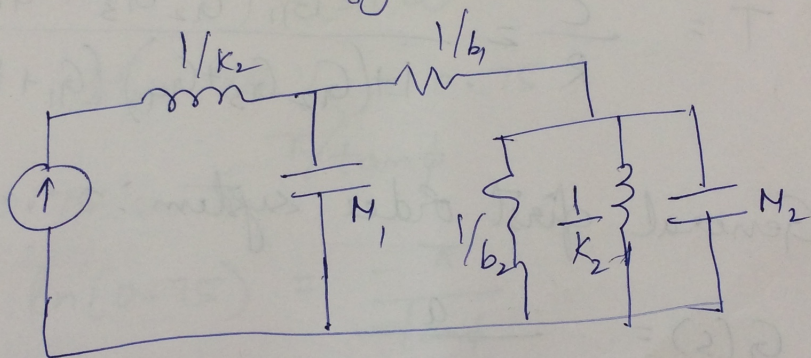 1/K₂
1/b₁
M₁
1/b₂
1/K₂
M₂